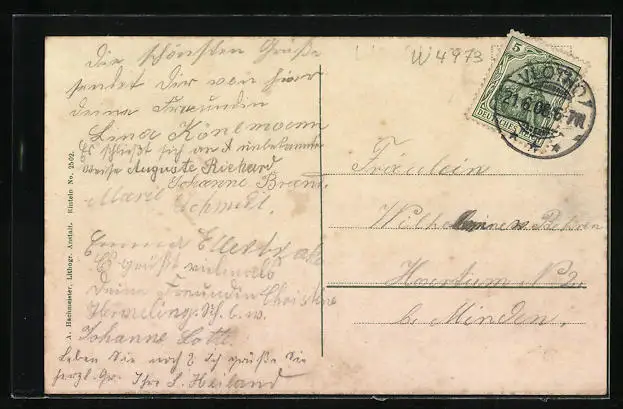 Die schönsten Grüße
sendet Dir von hier
deine Freundin
Lina Könemann
Es schließt sich an unbekannter
weise Auguste Richard
Johanne Brand.
Marie Schmidt.
Emma
Es grüßt vielmals
Deine Freundin Christine
Hermeling. Sch. b. w.
Johanne Lotte.
Leben Sie noch? Ich grüße Sie
herzl. Gr. Ihre L. Heiland
A. Hochmeister, Lithogr. Anstalt. Rinteln No. 2502.
W4973
5
DEUTSCHES REICH
VLOTHO
21.6.0 6-7N
Fräulein
Wilhelminen
Haertum No
b. Minden.